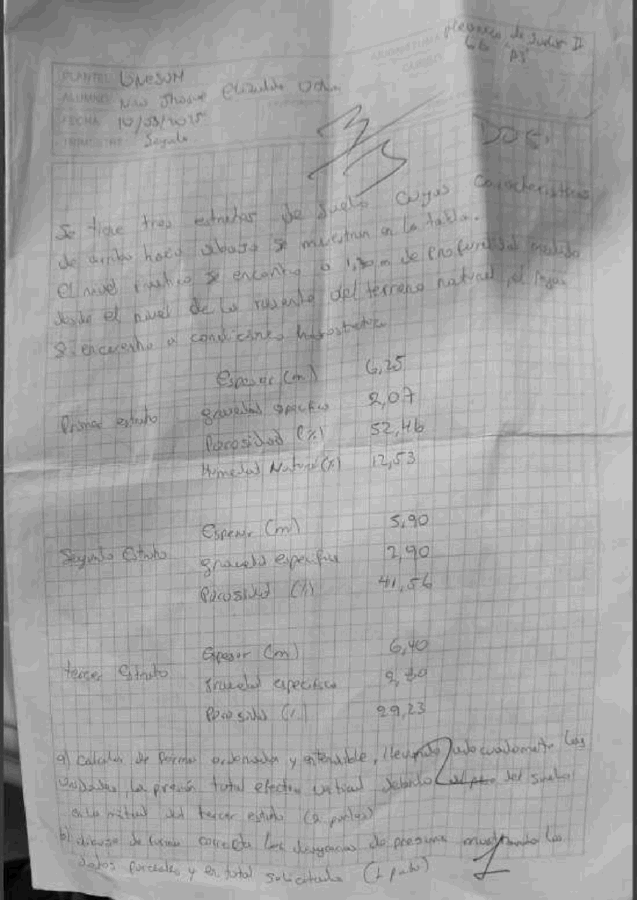 mecánica de suelos II
6to "B"
PLANTEL UNESUM
ALUMNO
FECHA 10/03/2025
Segundo
Se tiene tres estratos de suelo cuyas características
de arriba hacia abajo se muestran en la tabla.
El nivel freático se encontro a de profundidad medido
desde el nivel de la rasante del terreno natural, el agua
se encuentra a condiciones
Espesor (m) 6,25
Primer estrato gravedad específica 2,07
Porosidad (%) 52,46
Humedad Natural (%) 12,53
Espesor (m) 5,90
Segundo Estrato gravedad específica 2,90
Porosidad (%) 41,56
Espesor (m) 6,40
tercer Estrato gravedad específica
Porosidad (%) 29,23
a) calcular de forma ordenada y entendible, llevando adecuadamente las
unidades la presión total efectiva vertical debido del suelo
a la mitad del tercer estrato (2 puntos)
2
b) dibuje de forma correcta los diagramas de presiones mostrando los
datos parciales y en total solicitado (1 punto)
1